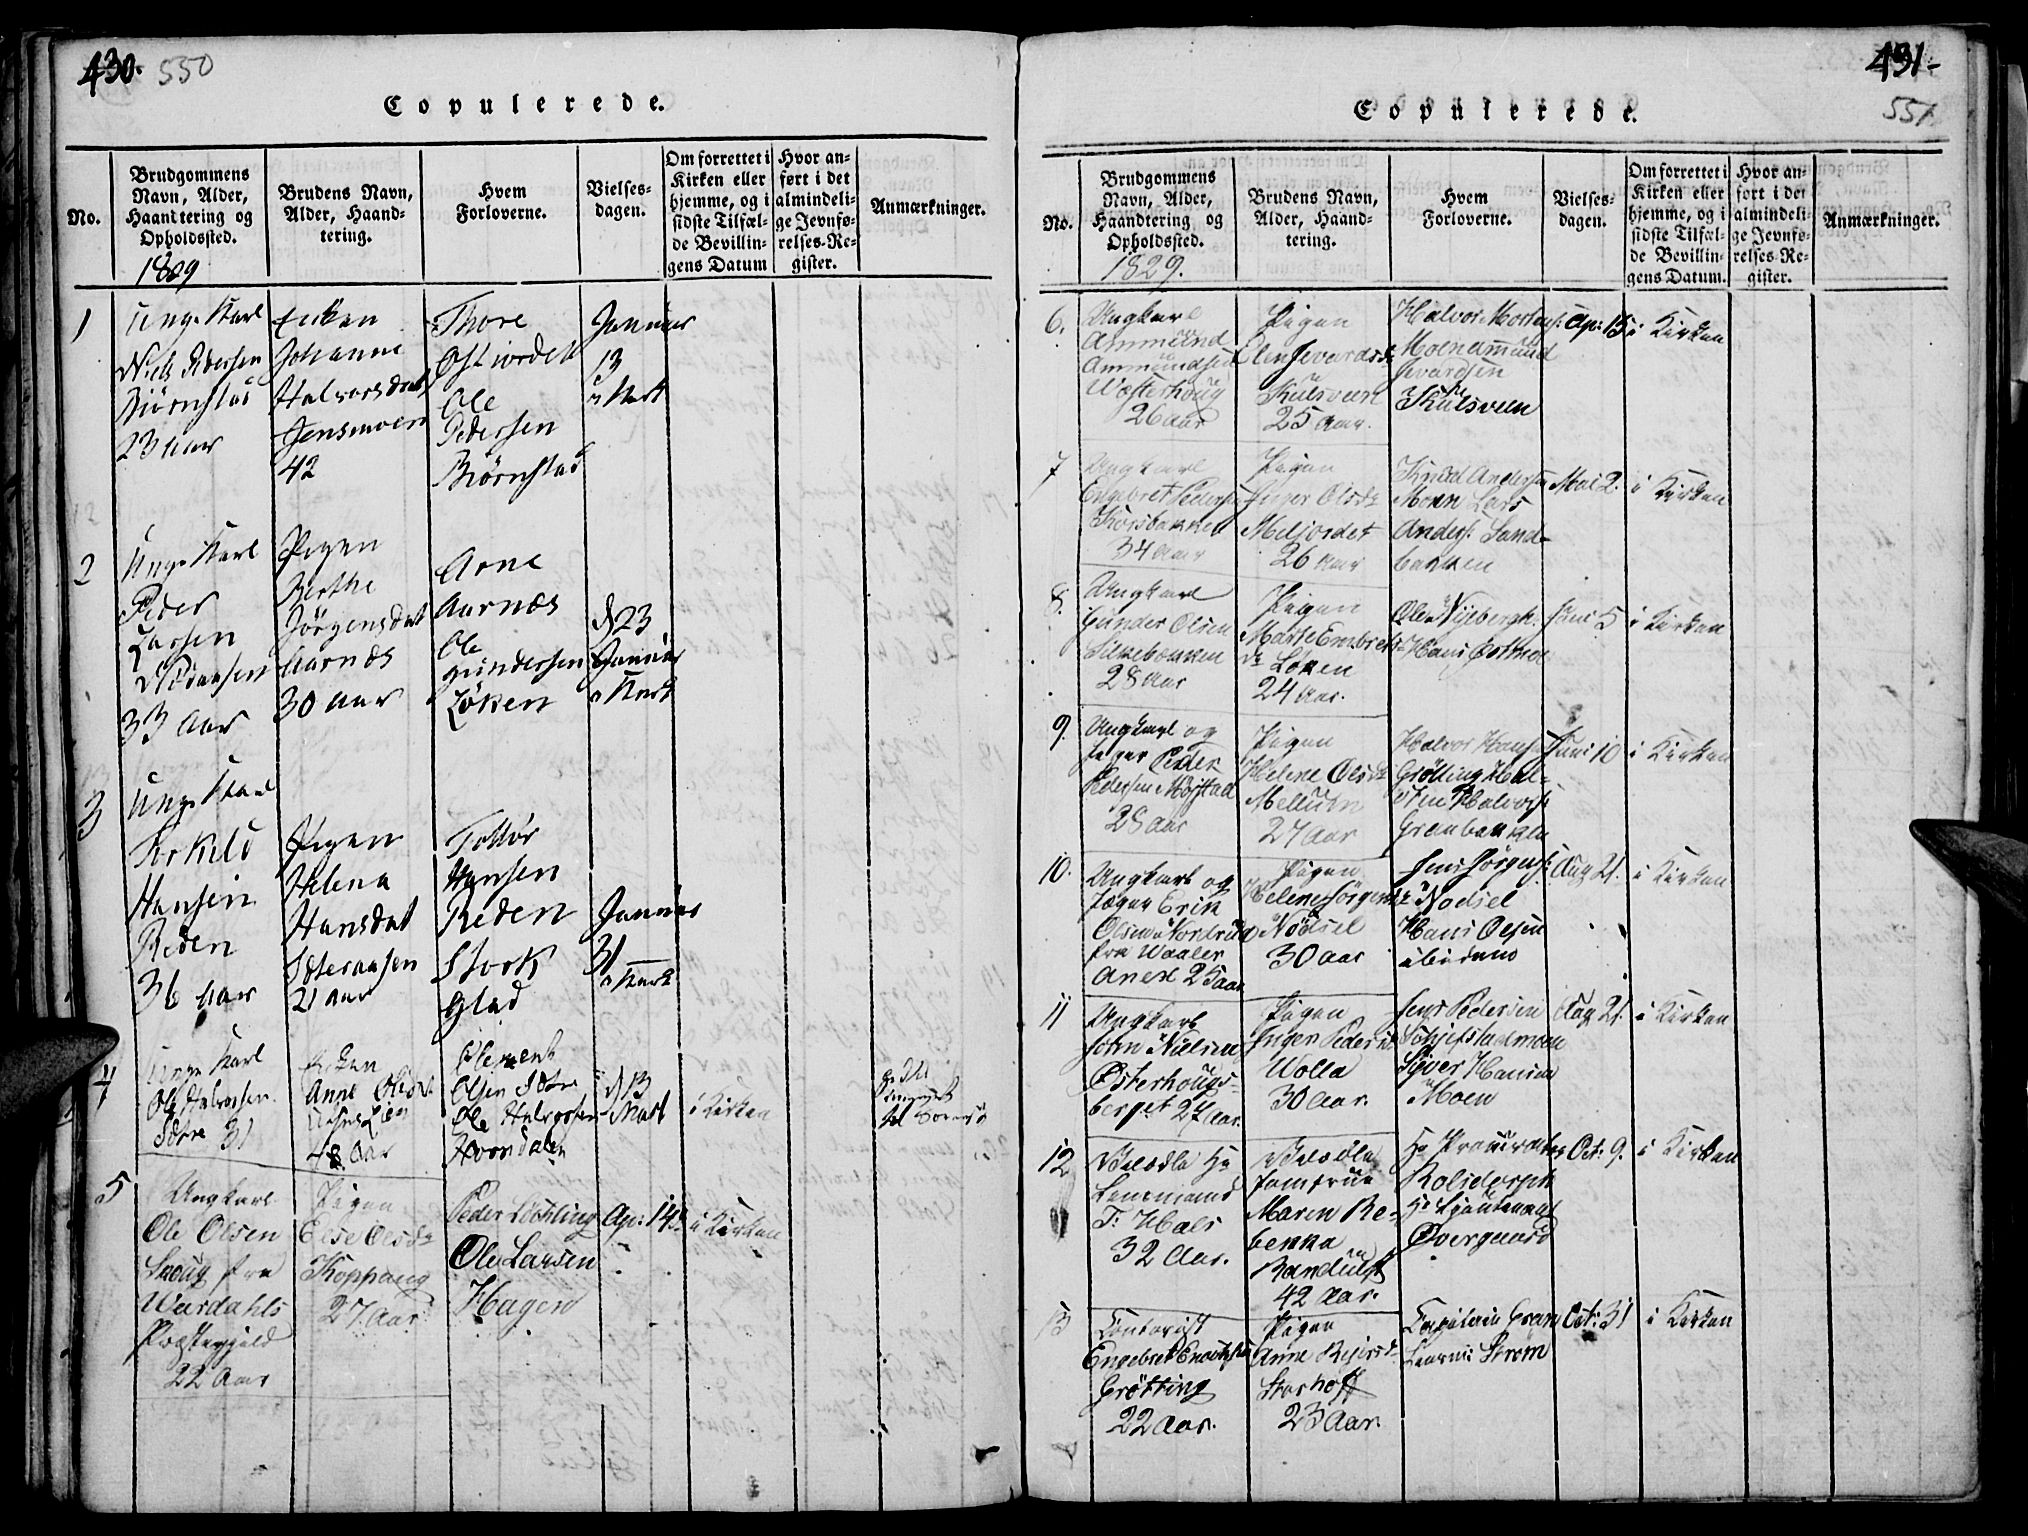 430. 550
Copulerede.
No.
Brudgommens
Navn, Alder,
Haandtering og
Opholdssted.
1829
Brudens Navn,
Alder, Haand-
tering.
Hvem
Forloverne.
Vielses-
dagen.
Om forrettet i
Kirken eller
hjemme, og i
sidste Tilfæl-
de Bevillin-
gens Datum
Hvor an-
ført i det
almindeli-
ge Jevnfø-
relses-Re-
gister.
Anmærkninger.
1
Unge Karl
Niels Pedersen
Biørnstad
23 aar
Enken
Johanne
Halvorsdat
Jensmoen
42
Thore
Ostiordet
Ole
Pedersen
Biørnstad
Januar
13
2
Unge Karl
Peder
Larsen
33 Aar
Pigen
Berthe
Jørgensdat
Aarnæs
30 aar
Arne
Aarnæs
Ole
Gundersen
Løken
d 23
Januar
3
Unge Karl
Torkild
Hansen
Reden
36 aar
Pigen
Helena
Hansdat
21 aar
Tollør
Hansen
Reden
Stork
Glad
Januar
31
4
Unge Karl
Ole Halvorsen
31
Enken
Anne Olsdat
48 Aar
Clement
Olsen
Ole Halvorsen
d 13
Mart
i Kirken
5
Ungkarl
Ole Olsen
Snoug fra
Værdahls
Præstegjeld
22 Aar
Pigen
Else Olsdr
Koppang
27 Aar
Peder
Ole Larsen
Hagen
Ap: 14.
i Kirken
431-
551
Copulerede.
No.
Brudgommens
Navn, Alder,
Haandtering og
Opholdssted.
1829.
Brudens Navn,
Alder, Haand-
tering.
Hvem
Forloverne.
Vielses-
dagen.
Om forrettet i
Kirken eller
hjemme, og i
sidste Tilfæl-
de Bevillin-
gens Datum.
Hvor an-
ført i det
almindeli-
ge Jevnfø-
relses-Re-
gister.
Anmærkninger.
6.
Ungkarl
Ammund
Ammundsen
Wæsterhoug
26 aar
Pigen
Olen Sevardsdr
Kulsveen
25 Aar.
Halvor Mortens:
Moen Amund
Sevardsen
Kulsveen
Ap: 15
i Kirken
7
Ungkarl
Engebret Pedersen
Korsbakken
34 aar
Pigen
Olsdr
Meljordet
26 aar
Knud Andersen
Moen Lars
Anders: Sand-
bakken
Mai 2.
i Kirken
8.
Ungkarl
Gunder Olsen
Silkebakken
28 Aar
Pigen
Marte Embrets
dr Løken
24 Aar.
Ole Nybergh.
Hans Østmoe
Juni 5
i Kirken
9.
Ungkarl og
Jæger Peder
Pedersen Møystad
28 Aar
Pigen
Helene Olsdr
Mellum
27 Aar
Halvor Hansen
Grötting Hal-
Halvors:
Granbakken
Juni 10
i Kirken
10.
Ungkarl og
Jæger Erik
Olsen Nordrud
fra Waaler
Anex 25 aar
Pigen
Helene Jørgensdr
Nödsel
30 aar
Jens Jörgens:
Nodsel
Hans Olsen
ibidem
Aug 21.
i Kirken
11
Ungkarl
John Nielsen
Østerhougs-
berget 27 Aar.
Pigen
Inger Peders
Wolla
30 Aar.
Jens Pedersen
Schjefstadmoen
Syver Hansen
Moen
Aug 21.
i Kirken
12
Velædle Hr
Lensmand
T: Hals
32 Aar.
Velædle
Jomfrue
Maren Re-
bekka
Randulf
42 Aar.
Hr Procurator
Rolsdorph
Hr Lieutenant
Övergaard
Oct: 9.
i Kirken
13
Contorist
Engebret
Grötting
22 Aar.
Pigen
Anne
Storhoff
23 Aar.
Capitain Gram
Strøm
Oct: 31
i Kirken